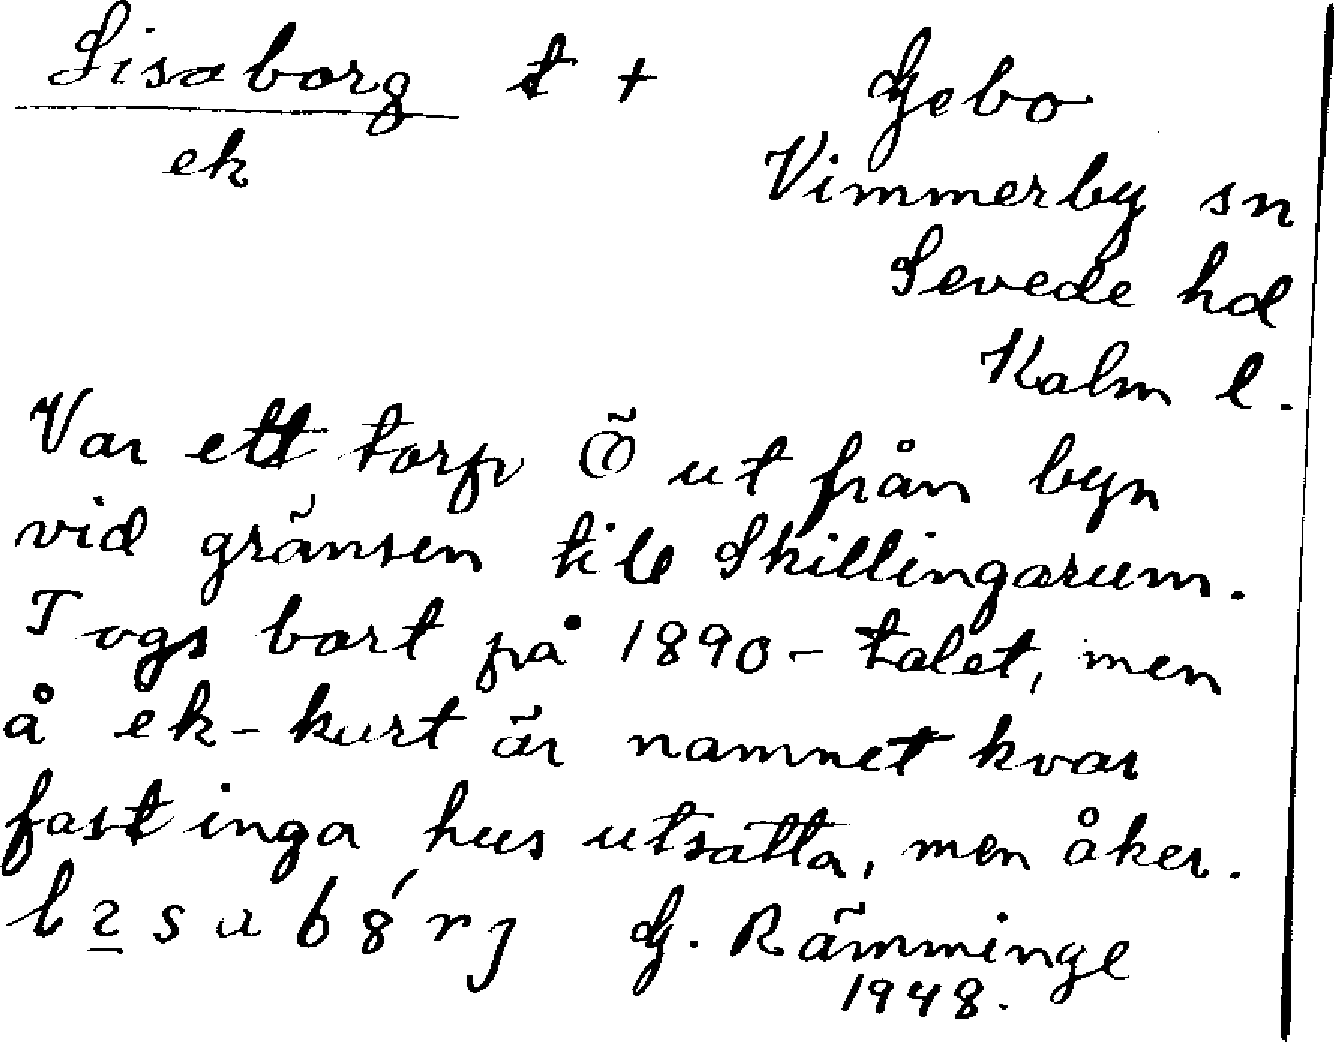 Lisaborg t + Gebo
ek
Vimmerby sn
Sevede hd
Kalm l.
Var ett torp Ö ut från byn
vid gränsen till Skillingarum.
Togs bort på 1890-talet, men
å ek-kart är namnet kvar
fast inga hus utsatta, men åker.
G. Rämminge
1948.